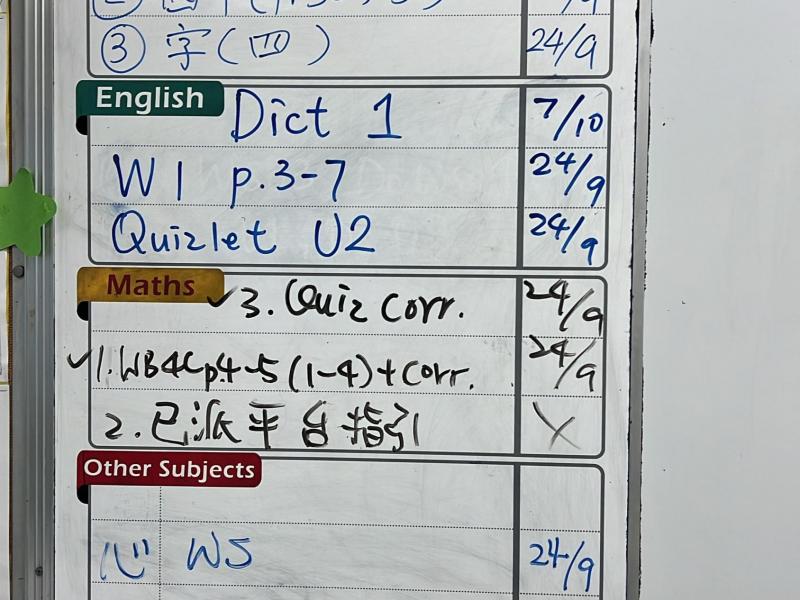 ③ 字(四) 24/9
English
Dict 1 7/10
W1 p.3-7 24/9
Quizlet U2 24/9
Maths
✓3. Quiz corr. 24/9
✓1. WB4C p.4-5 (1-4)+corr. 24/9
2. 已派平台指引 X
Other Subjects
心 WS 24/9